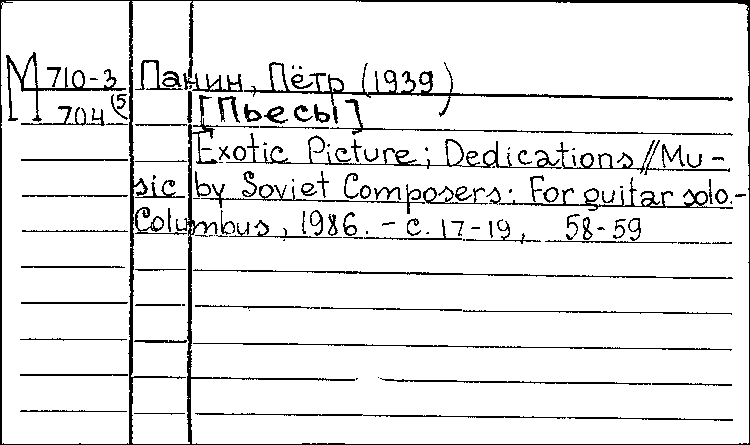 М 710-3 Панин, Пётр (1939)
704 (5) [Пьесы]
Exotic Picture; Dedications // Mu-
sic by Soviet Composers: For guitar solo.-
Columbus, 1986. - с. 17-19, 58-59